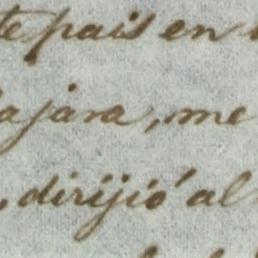 te pais en
ajara, me
, dirijió al